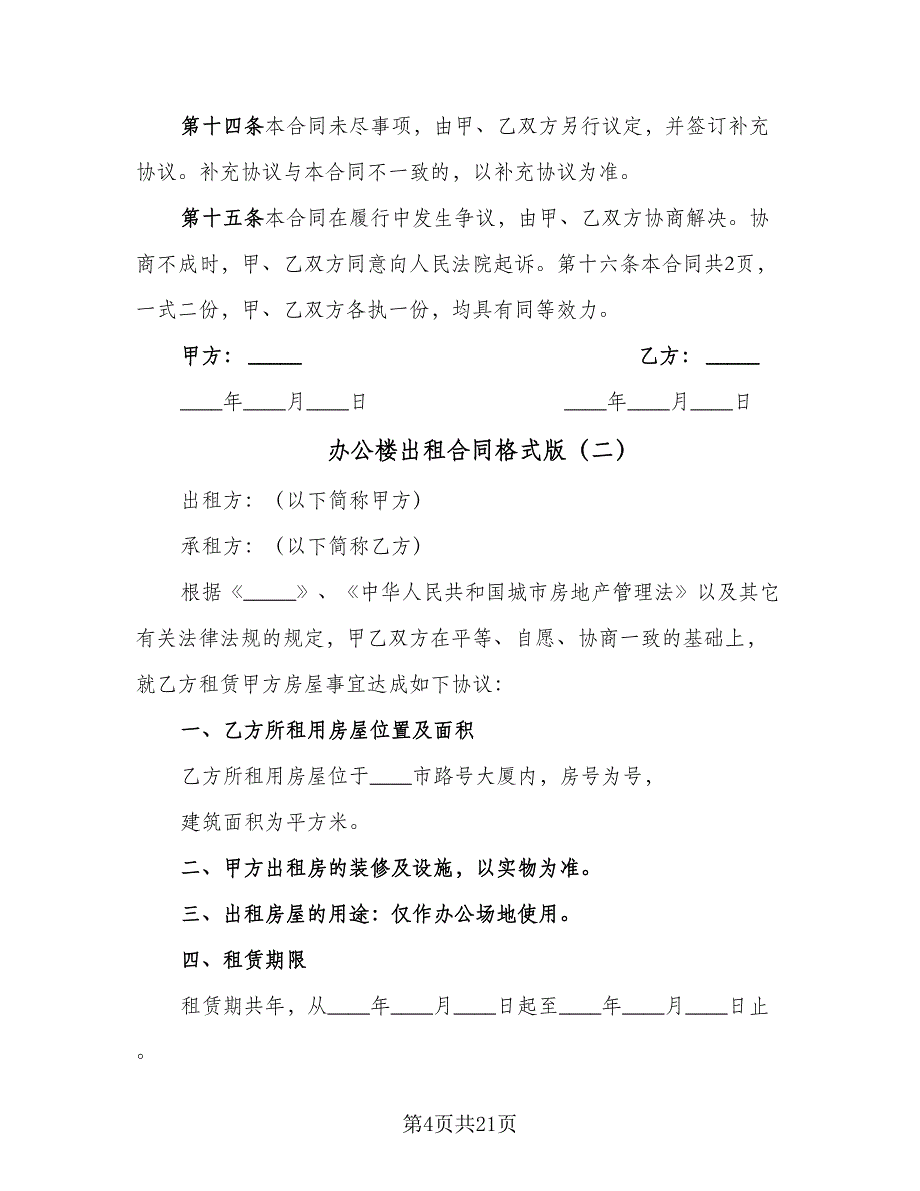 第十四条本合同未尽事项，由甲、乙双方另行议定，并签订补充
协议。补充协议与本合同不一致的，以补充协议为准。
第十五条本合同在履行中发生争议，由甲、乙双方协商解决。协
商不成时，甲、乙双方同意向人民法院起诉。第十六条本合同共2页，
一式二份，甲、乙双方各执一份，均具有同等效力。
甲方：_____ 乙方：_____
____年____月____日 ____年____月____日
办公楼出租合同格式版（二）
出租方：（以下简称甲方）
承租方：（以下简称乙方）
根据《_____》、《中华人民共和国城市房地产管理法》以及其它
有关法律法规的规定，甲乙双方在平等、自愿、协商一致的基础上，
就乙方租赁甲方房屋事宜达成如下协议：
一、乙方所租用房屋位置及面积
乙方所租用房屋位于____市路号大厦内，房号为号，
建筑面积为平方米。
二、甲方出租房的装修及设施，以实物为准。
三、出租房屋的用途：仅作办公场地使用。
四、租赁期限
租赁期共年，从____年____月____日起至____年____月____日止
。
第4页共21页